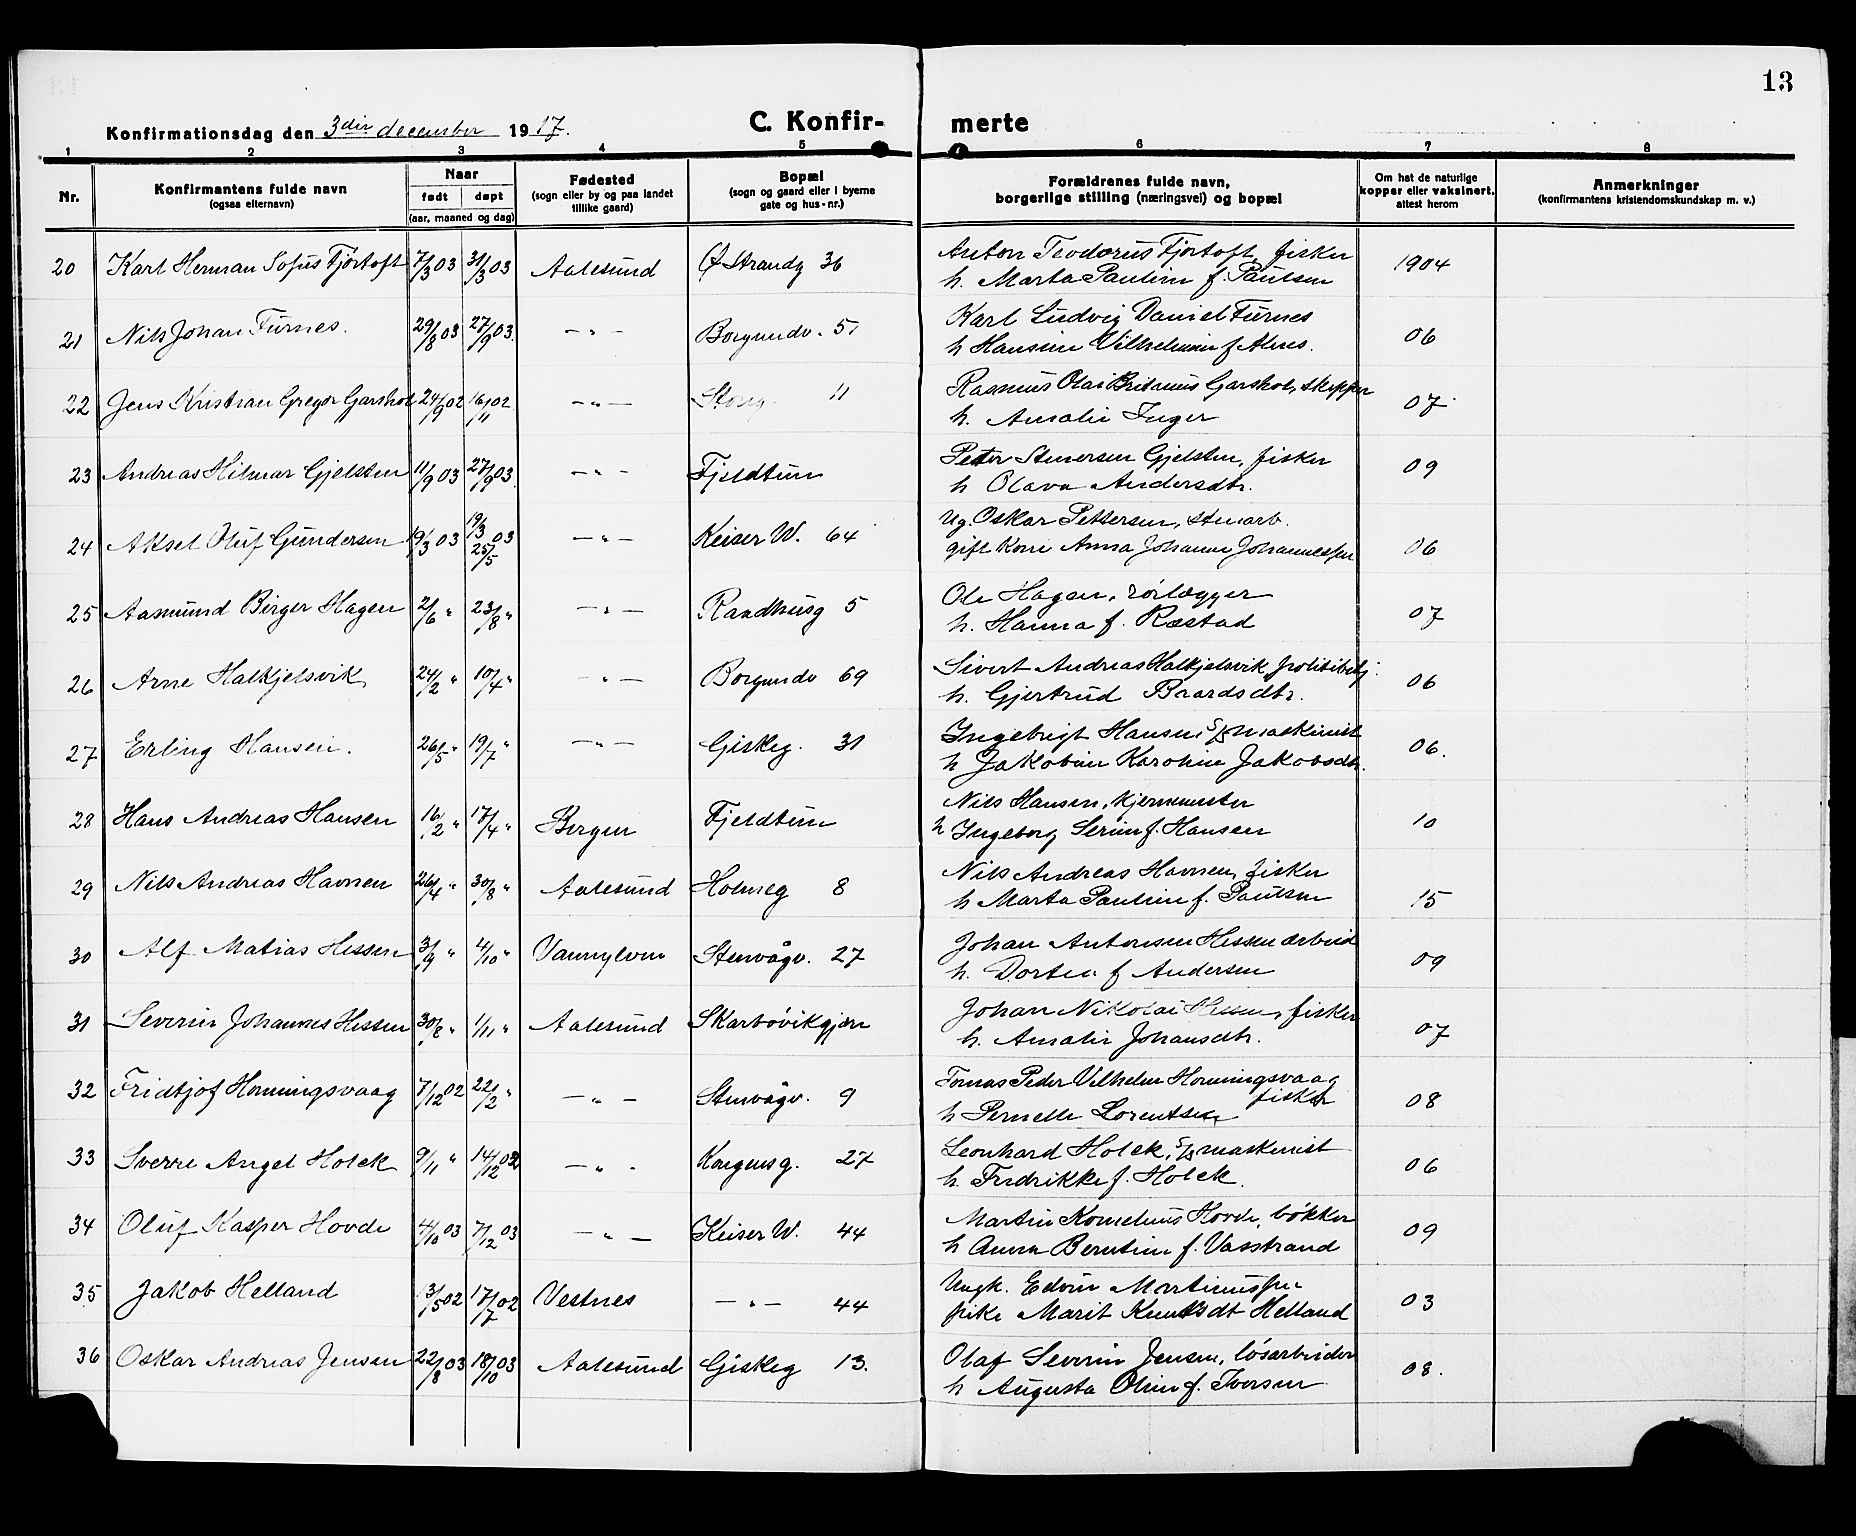 13
Konfirmationsdag den 3die december 1917.
C. Konfir- merte
1 2 3 4 5 6 7 8
Nr.
Konfirmantens fulde navn
(ogsaa elternavn)
Naar
født døpt
(aar, maaned og dag)
Fødested
(sogn eller by og paa landet
tillike gaard)
Bopæl
(sogn og gaard eller i byerne
gate og hus-nr.)
Forældrenes fulde navn,
borgerlige stilling (næringsvei) og bopæl
Om hat de naturlige
kopper eller vaksinert,
attest herom
Anmerkninger
(konfirmantens kristendomskundskap m. v.)
20 Karl Herman Sofus Fjørtoft 7/3 03 31/3 03 Aalesund Ø Strandg 36 Anton Teodorus Fjørtoft, fisker 1904
h. Marta Pauline f. Paulsen
21 Nils Johan Furnes. 29/8 03 27/9 03. — " — Borgundv. 51 Karl Ludvig Daniel Furnes 06
h Hansine Vilhelmine f Alnes.
22 Jens Kristian Gregor Garshol 24/9 02 16/11 02 — " — Storg. 11 Rasmus Olai Garshol, skipper 07
h. Amalie Inger
23 Andreas Hilmar Gjelsten 11/9 03 27/9 03. — " — Fjeldtun Peter Stenersen Gjelsten, fisker 09
h Olava Andersdtr.
24 Aksel Oluf Gundersen 19/3 03 19/3 25/5 03 — " — Keiser W. 64 Ug. Oskar Pettersen, stenarb. 06
gift Kone Anna Johanne Johannessen
25 Aasmund Birger Hagen 2/6 " 23/8 " — " — Raadhusg 5 Ole Hagen, rørlægger 07
h. Hanna f. Ræstad
26 Arne Halkjelsvik 24/2 " 10/4 " — " — Borgundv 69 Sivert Andreas Halkjelsvik politibetj. 06
h. Gjertrud Baardsdtr.
27 Erling Hansen. 26/5 " 19/7 " — " — Giskeg. 31 Ingebrigt Hansen, S/S maskinist 06.
h Jakobine Karoline Jakobsdtr.
28 Hans Andreas Hansen 16/2 " 17/4 " Bergen Fjeldtun Nils Hansen, 10
h Ingeborg Serine f. Hansen
29 Nils Andreas Havnen 26/4 " 30/8 " Aalesund Holmeg 8 Nils Andreas Havnen, fisker 15
h Marta Pauline f. Paulsen
30 Alf Matias Hessen 3/9 " 4/10 " Vannylven Stenvågv. 27 Johan Antonsen Hessen arbeid 09
h. Dortea f Andersen
31 Severin Johannes Hessen 30/8 " 1/11 " Aalesund Skarbøvikgjæn Johan Nikolai Hessen, fisker 07
h. Amalie Johansdtr.
32 Fridtjof Honningsvaag 7/12 02 22/2 " — " — Stenvågv. 9 Tomas Peder Vilhelm Honningsvaag 08
fisker
h Pernelle Lorentsen
33 Sverre Angel Holck 9/11 " 14/12 02 — " . Kongensg. 27 Leonhard Holck, S/S maskinist 06
h. Fredrikke f. Holck.
34 Oluf Kasper Hovde 4/10 03 7/12 03 — " — Keiser W. 44 Martin Kornelius Hovde, bøkker 09
h Anna Berntine f. Vasstrand
35 Jakob Helland 13/5 02 17/7 02 Vestnes — " — 44 Ungk. Edvin Martinussen 03
pike Marit Knutsdt Helland
36 Oskar Andreas Jensen 22/8 03 18/10 03 Aalesund Giskeg 13. Olaf Severin Jensen, løsarbeider 08.
h Augusta Oline f. Iversen